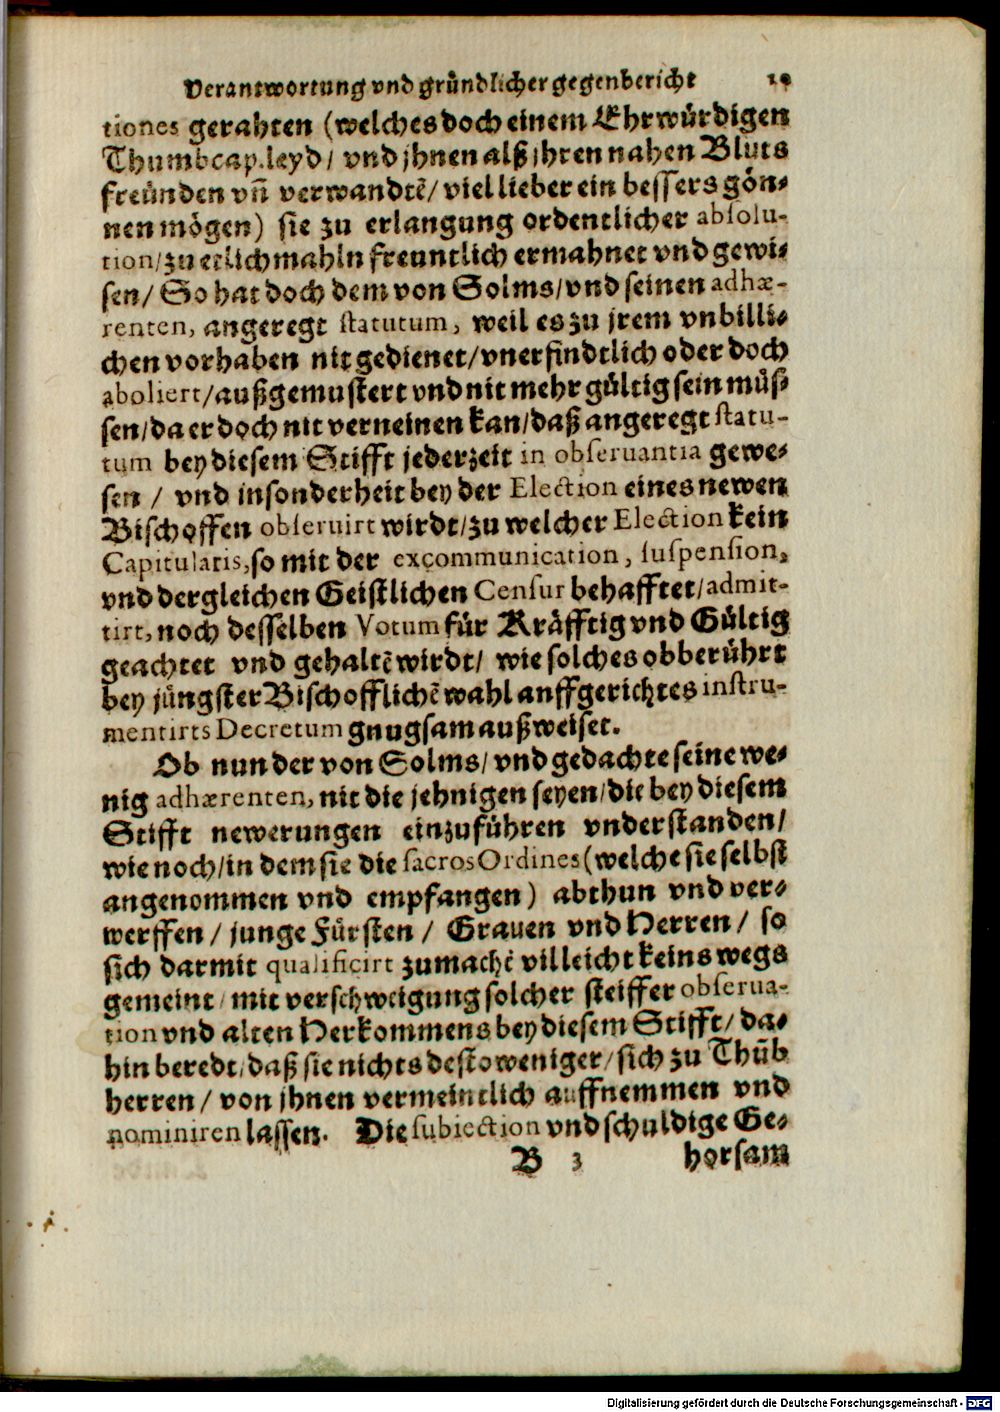 Verantwortung vnd gründlicher gegenbericht
tiones gerahten (welches doch einem Ehrwürdigen
Thumbcap. leyd / vnd jhnen alß jhren nahen Blüts
freünden vñ verwandtẽ / viel lieber ein bessers gön-
nen mögen) sie zu erlangung ordentlicher absolu-
tion / zu etlichmahln freuntlich ermahnet vnd gewi-
sen / So hat doch dem von Solms / vnd seinen adhæ-
renten, angeregt statutum, weil es zu jrem vnbilli-
chen vorhaben nit gedienet / vnerfindtlich oder doch
aboliert / außgemustert vnd nit mehr gültig sein müs-
sen / da er doch nit verneinen kan / daß angeregt statu-
tum bey diesem Stifft jederzeit in obseruantia gewe-
sen / vnd insonderheit bey der Election eines newen
Bischoffen obseruirt wirdt / zu welcher Election kein
Capitularis, so mit der excommunication, suspension,
vnd dergleichen Geistlichen Censur behafftet / admit-
tirt, noch desselben Votum für Kräfftig vnd Gültig
geachtet vnd gehaltẽ wirdt / wie solches obberührt
bey jüngster Bischofflichẽ wahl auffgerichtes instru-
mentirts Decretum gnugsam außweiset.
Ob nun der von Solms / vnd gedachte seine we-
nig adhærenten, nit die jehnigen seyen / die bey diesem
Stifft newerungen einzuführen vnderstanden /
wie noch / in dem sie die sacros Ordines (welche sie selbst
angenommen vnd empfangen) abthun vnd ver-
werffen / junge Fürsten / Grauen vnd Herren / so
sich darmit qualificirt zumachẽ villeicht keins wegs
gemeint / mit verschweigung solcher steiffer obserua-
tion vnd alten Herkommens bey diesem Stifft / da-
hin beredt / daß sie nichts destoweniger / sich zu Thũb
herren / von jhnen vermeintlich auffnemmen vnd
nominiren lassen. Die subiection vnd schuldige Ge-
B 3 horsam
Digitalisierung gefördert durch die Deutsche Forschungsgemeinschaft - DFG